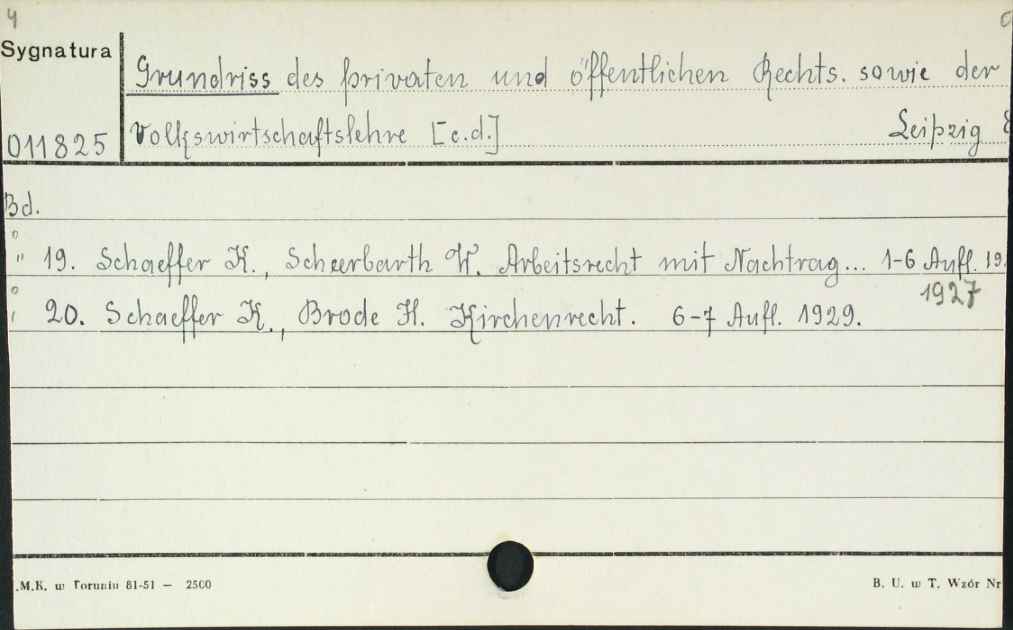 4
Sygnatura
Grundriss des privaten und öffentlichen Rechts. sowie der
011825
Volkswirtschaftslehre [c.d.] Leipzig
Bd.
" 19. Schaeffer K., Scheerbarth W. Arbeitsrecht mit Nachtrag... 1-6 Aufl. 19
1927
20. Schaeffer K., Brode H. Kirchenrecht. 6-7 Aufl. 1929.
.M.K. w Toruniu 81-51 — 2500
B. U. w T. Wzór Nr